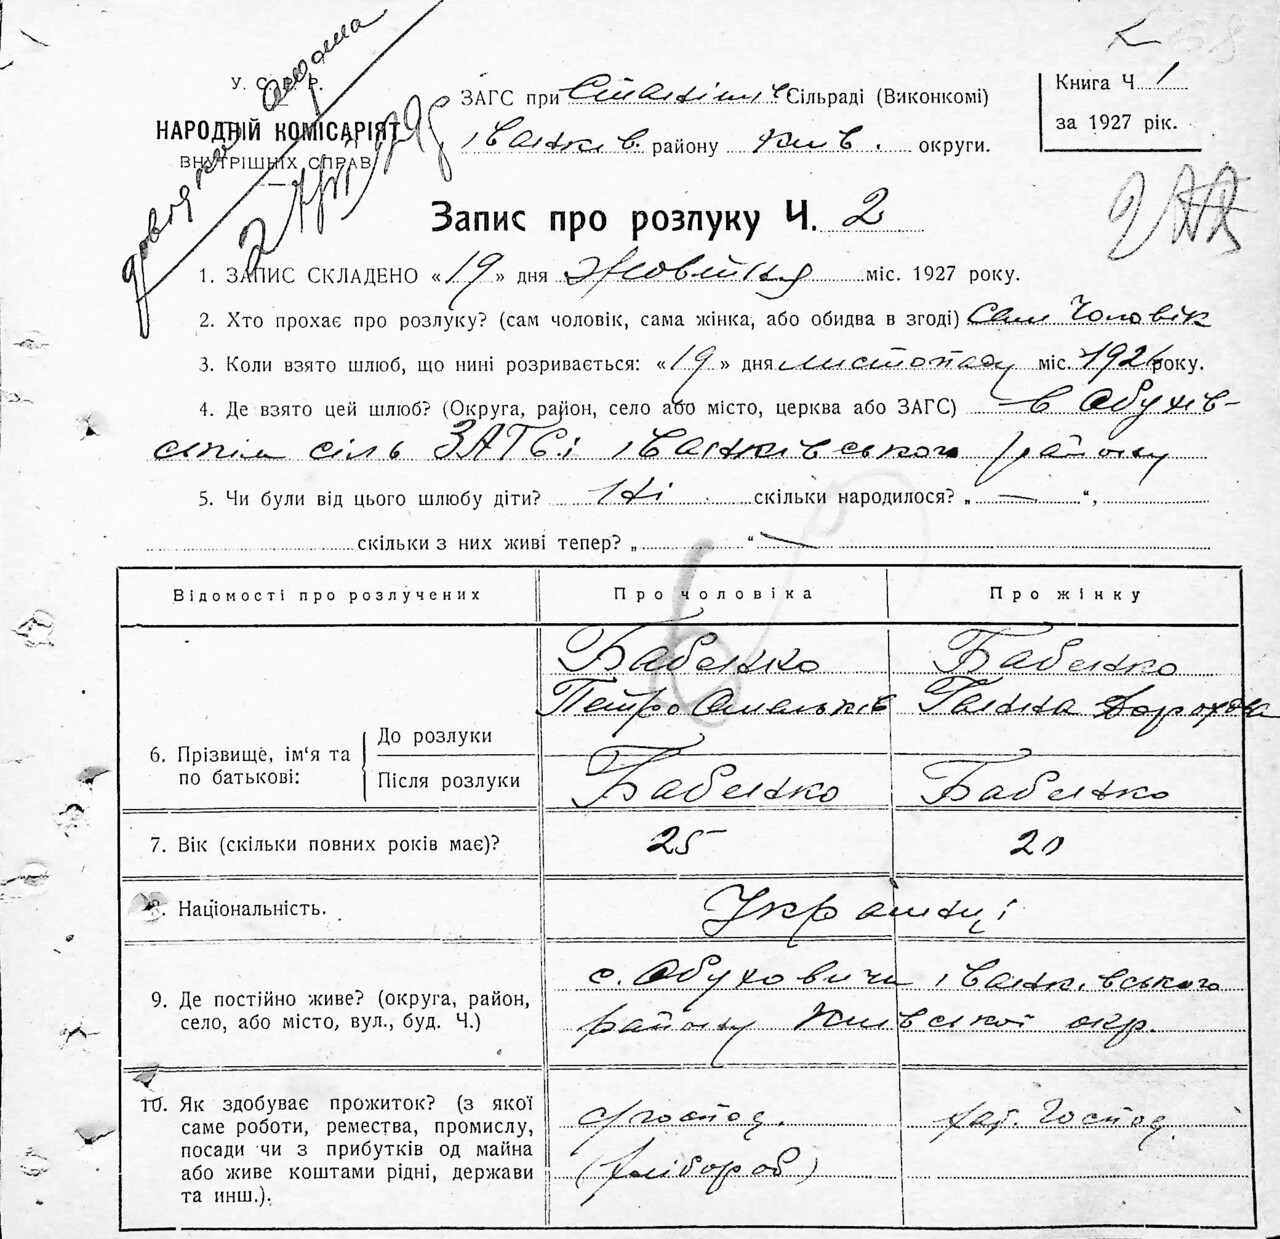 У. С. Р. Р.
НАРОДНІЙ КОМІСАРІЯТ
ВНУТРІШНІХ СПРАВ
ЗАГС при Сільраді (Виконкомі)
Іванків. району Київ. округи.
Книга Ч. 1
за 1927 рік.
Запис про розлуку Ч. 2
1. ЗАПИС СКЛАДЕНО «19» дня Жовтня міс. 1927 року.
2. Хто прохає про розлуку? (сам чоловік, сама жінка, або обидва в згоді) Сам Чоловік
3. Коли взято шлюб, що нині розривається: «19» дня листопаду міс. року.
4. Де взято цей шлюб? (Округа, район, село або місто, церква або ЗАГС) в Обухів-
ськім сіль ЗАГСі Іванківського району
5. Чи були від цього шлюбу діти? Ні скільки народилося? „ — “,
скільки з них живі тепер? „ “ —
Відомості про розлучених Про чоловіка Про жінку
Бабенко Бабенко
Петро Омельків Ганна
6. Прізвище, ім'я та по батькові: До розлуки
Після розлуки Бабенко Бабенко
7. Вік (скільки повних років має)? 25 20
8. Національність. Українці
9. Де постійно живе? (округа, район, с. Обуховичи Іванківського
село, або місто, вул., буд. Ч.) району Київської окр.
10. Як здобуває прожиток? (з якої
саме роботи, ремества, промислу, госпо­д. Госпо­д.
посади чи з прибутків од майна
або живе коштами рідні, держави (хлібороб)
та инш.).